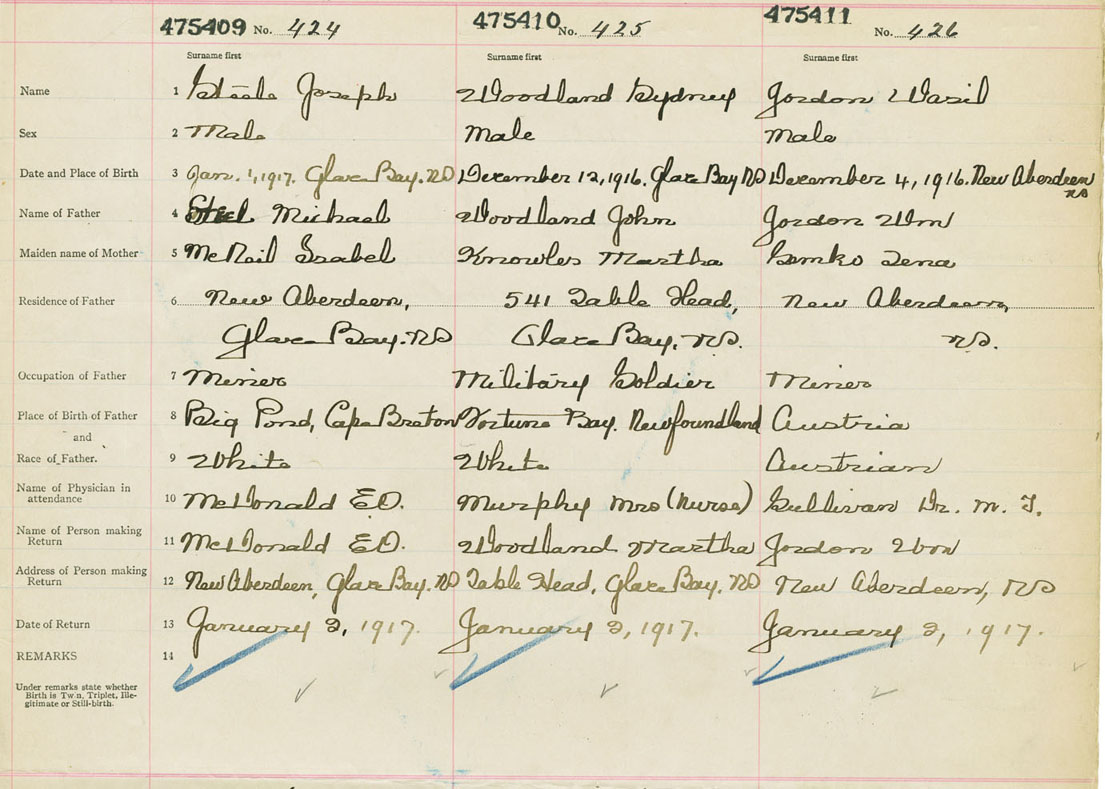 475409 No. 424 475410 No. 425 475411 No. 426
Surname first Surname first Surname first
Name 1 Steele Joseph Woodland Sydney Jordon Wasil
Sex 2 Male Male Male
Date and Place of Birth 3 Jan. 1, 1917. Glace Bay. NS December 12, 1916. Glace Bay NS December 4, 1916. New Aberdeen
NS
Name of Father 4 Steel Michael Woodland John Jordon Wm
Maiden name of Mother 5 McNeil Isabel Knowles Martha Semko Tena
Residence of Father 6 New Aberdeen, 541 Table Head, New Aberdeen,
Glace Bay. NS Glace Bay, NS. NS.
Occupation of Father 7 Miner Military Soldier Miner
Place of Birth of Father 8 Big Pond, Cape Breton Fortune Bay. Newfoundland Austria
and
Race of Father. 9 White White Austrian
Name of Physician in
attendance 10 McDonald E.O. Murphy Mrs (Nurse) Sullivan Dr. M. T.
Name of Person making
Return 11 McDonald E.O. Woodland Martha Jordon Wm
Address of Person making
Return 12 New Aberdeen, Glace Bay. NS Table Head, Glace Bay. NS New Aberdeen, NS
Date of Return 13 January 2, 1917. January 2, 1917. January 2, 1917.
REMARKS 14
Under remarks state whether
Birth is Twin, Triplet, Ille-
gitimate or Still-birth.